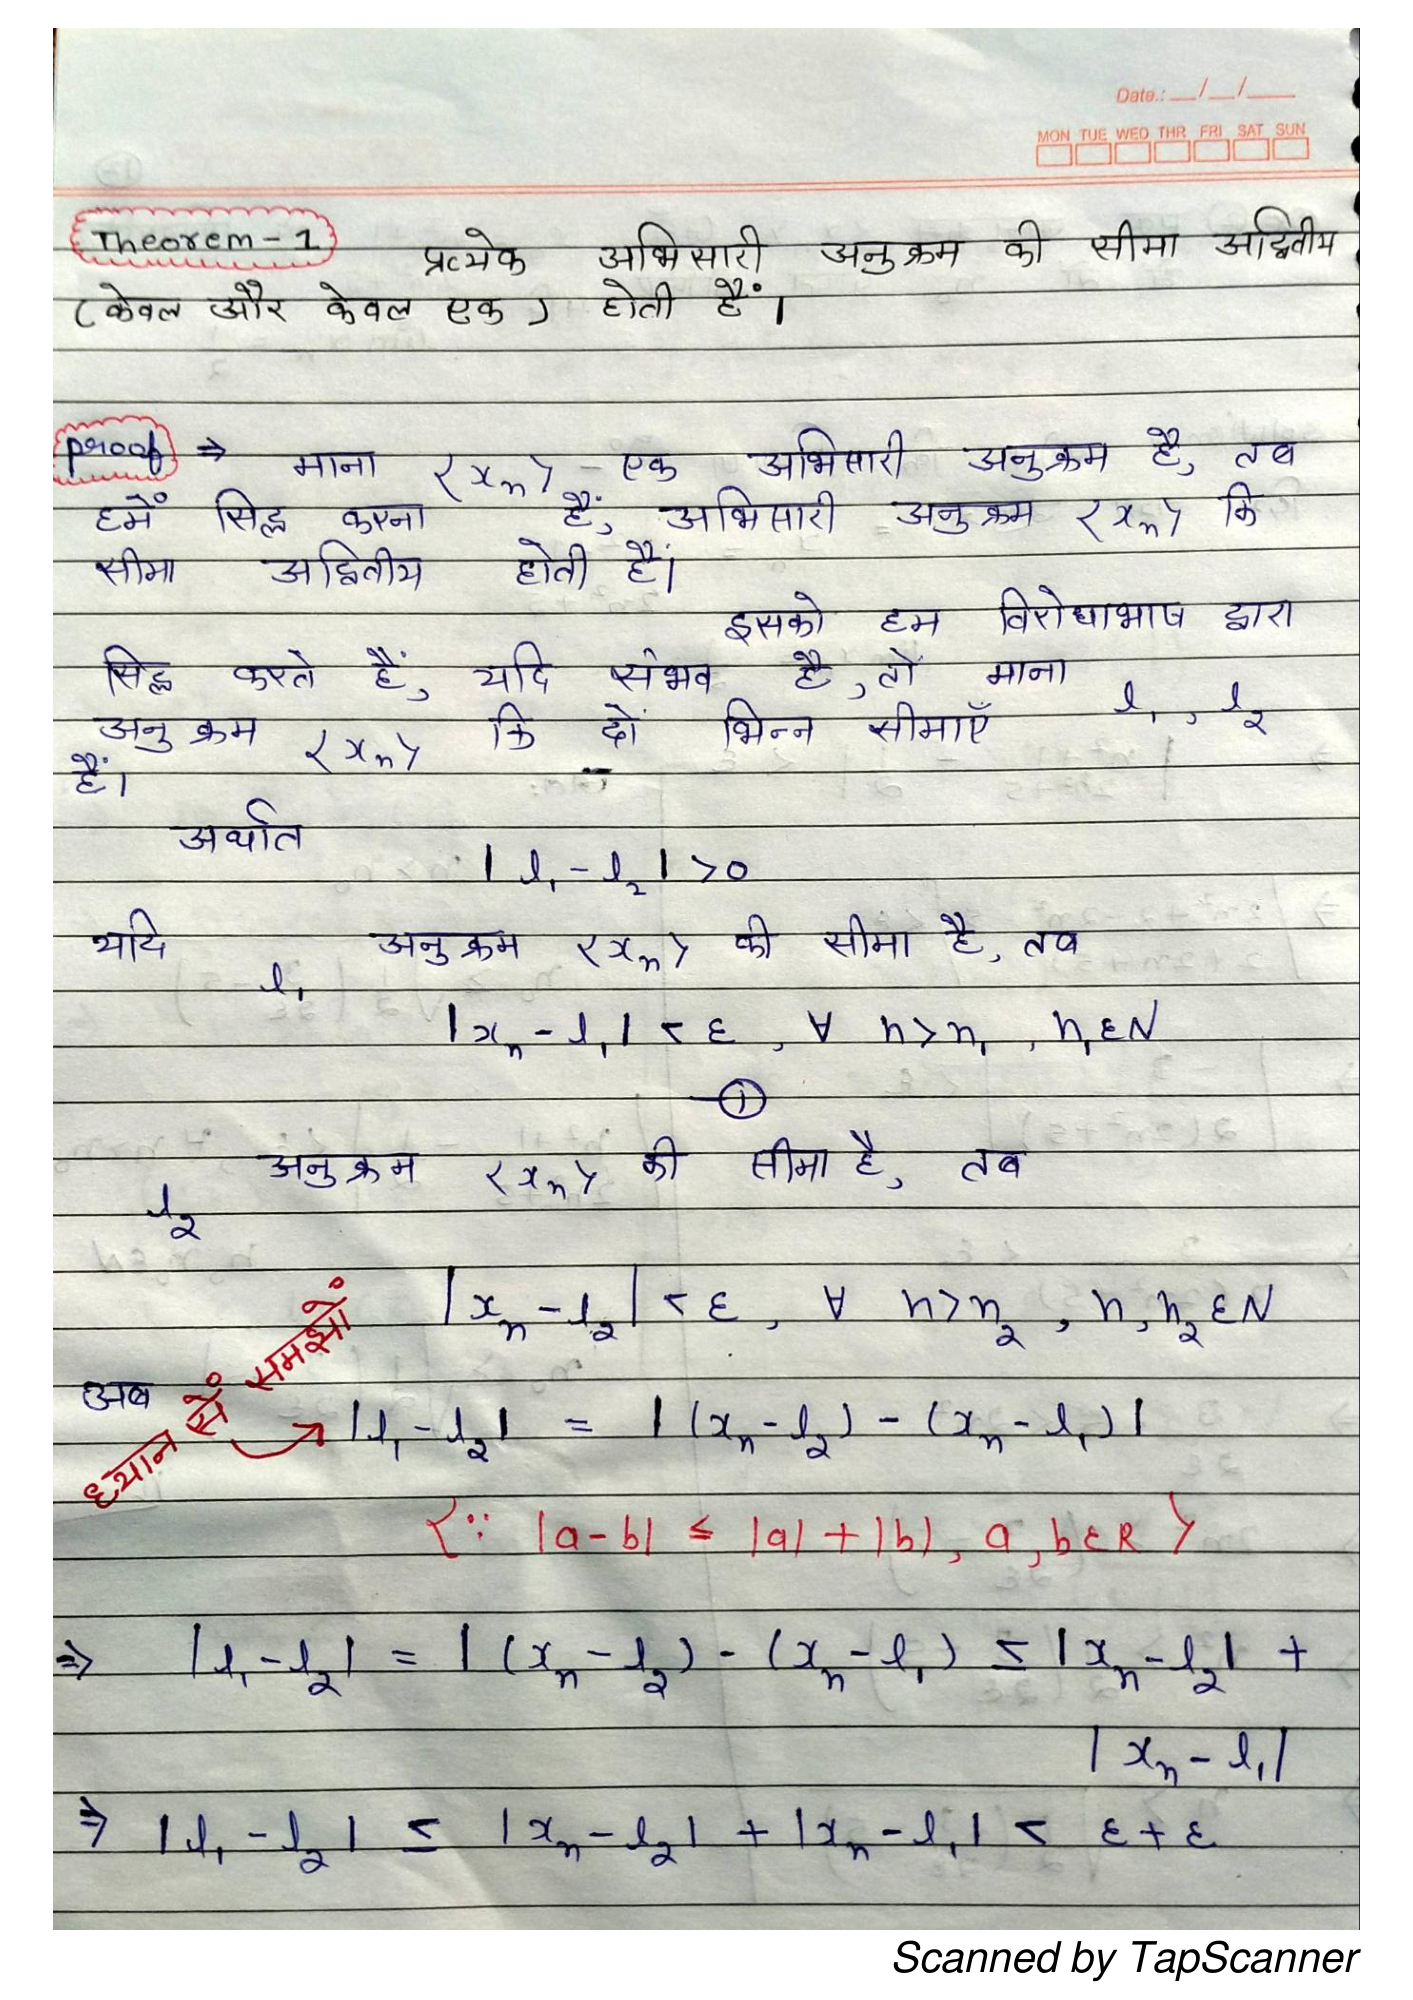 Date.: __/__/___
MON TUE WED THR FRI SAT SUN
Theorem - 1 प्रत्येक अभिसारी अनुक्रम की सीमा अद्वितीय
(केवल और केवल एक) होती हैं।
Proof ⇒ माना <xₙ> एक अभिसारी अनुक्रम है, तब
हमें सिद्ध करना हैं, अभिसारी अनुक्रम <xₙ> कि
सीमा अद्वितीय होती हैं।
इसको हम विरोधाभाष द्वारा
सिद्ध करते हैं, यदि संभव है, तों माना
अनुक्रम <xₙ> कि दों भिन्न सीमाएँ l₁, l₂
हैं।
अर्थात
|l₁ - l₂| > 0
यदि l₁ अनुक्रम <xₙ> की सीमा है, तब
|xₙ - l₁| < ε, ∀ n > n₁, n₁ ε N
— ①
l₂ अनुक्रम <xₙ> की सीमा है, तब
|xₙ - l₂| < ε, ∀ n > n₂, n, n₂ ε N
ध्यान सें समझों
अब |l₁ - l₂| = |(xₙ - l₂) - (xₙ - l₁)|
<∵ |a - b| ≤ |a| + |b|, a, b ε R>
⇒ |l₁ - l₂| = |(xₙ - l₂) - (xₙ - l₁) ≤ |xₙ - l₂| +
|xₙ - l₁|
⇒ |l₁ - l₂| ≤ |xₙ - l₂| + |xₙ - l₁| < ε + ε
Scanned by TapScanner